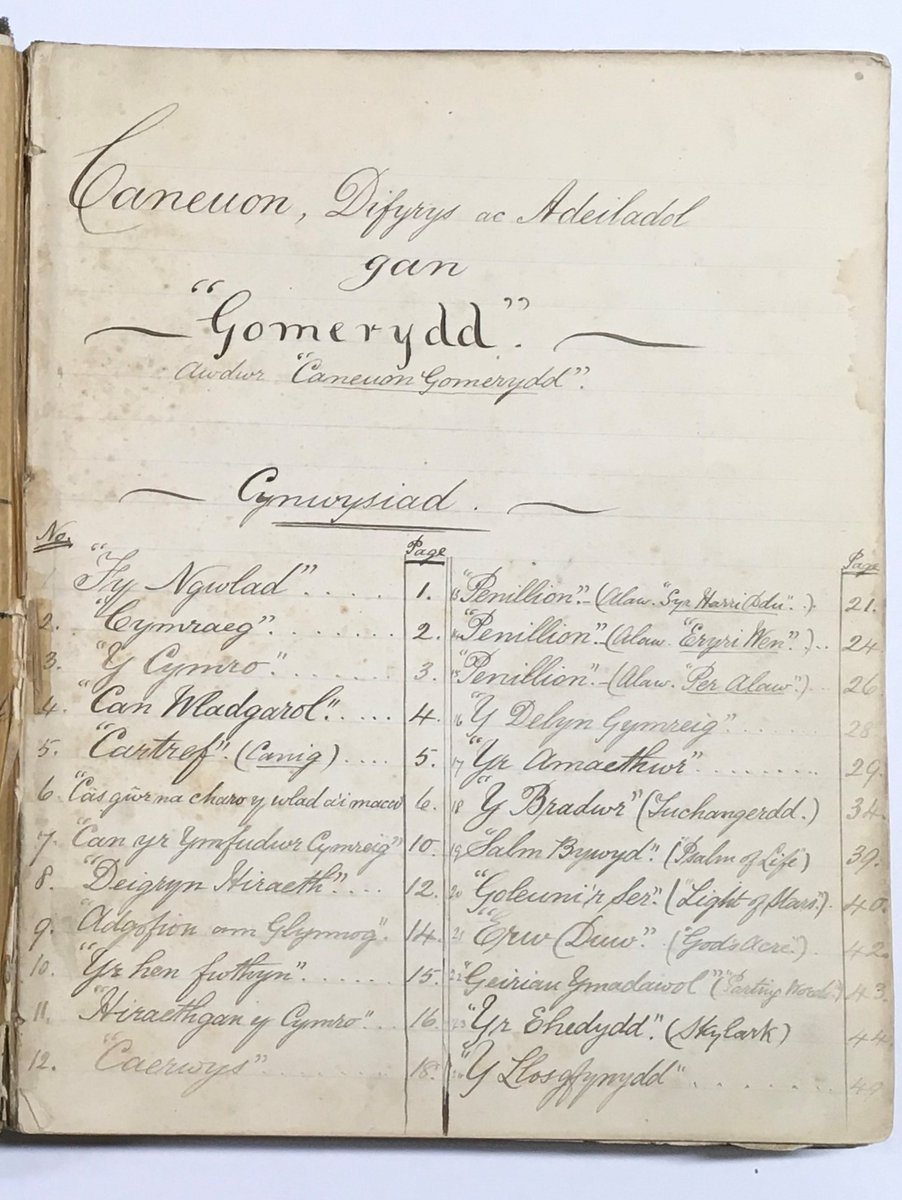 Caneuon, Difyrys ac Adeiladol
gan
"Gomerydd".
Awdwr "Caneuon Gomerydd".
Cynwysiad.
No. Page
1 "Fy Ngwlad". . . . . 1.
2. "Cymraeg". . . . . . . . 2.
3. "Y Cymro". . . . . . . . 3.
4. "Can Wladgarol". . . . . 4.
5. "Cartref". (Canig) . . . . 5.
6 "Câs gŵr na charo y wlad a'i maco" 6.
7. "Can yr Ymfudwr Cymreig" 10.
8. "Deigryn Hiraeth". . . . 12.
9. "Adgofion am Glynnog". 14.
10. "Yr hen fwthyn". . . . . . 15.
11. "Hiraethgan y Cymro". . . 16.
12. "Caerwys" . . . . . . . . 18.
Page
13 "Penillion". - (Alaw. "Syr Harri Ddu". .). 21.
14 "Penillion". (Alaw. "Eryri Wen". .). . 24
15 "Penillion". - (Alaw. "Per Alaw".) . . . 26.
16 "Y Delyn Gymreig" . . . . . . 28
17 "Yr Amaethwr" . . . . . . . . 29.
18 "Y Bradwr" (Tuchangerdd.) 34.
19 "Salm Bywyd". ("Psalm of Life") 39.
20 "Goleuni'r Ser". ("Light of Stars".). 40.
21 "Erw Duw". ("God's Acre".) 42.
22 "Geiriau Ymadawol" ("Parting Words") 43.
23 "Yr Ehedydd". (Skylark) 44
24 "Y Llosgfynydd" . . . . . . . 49